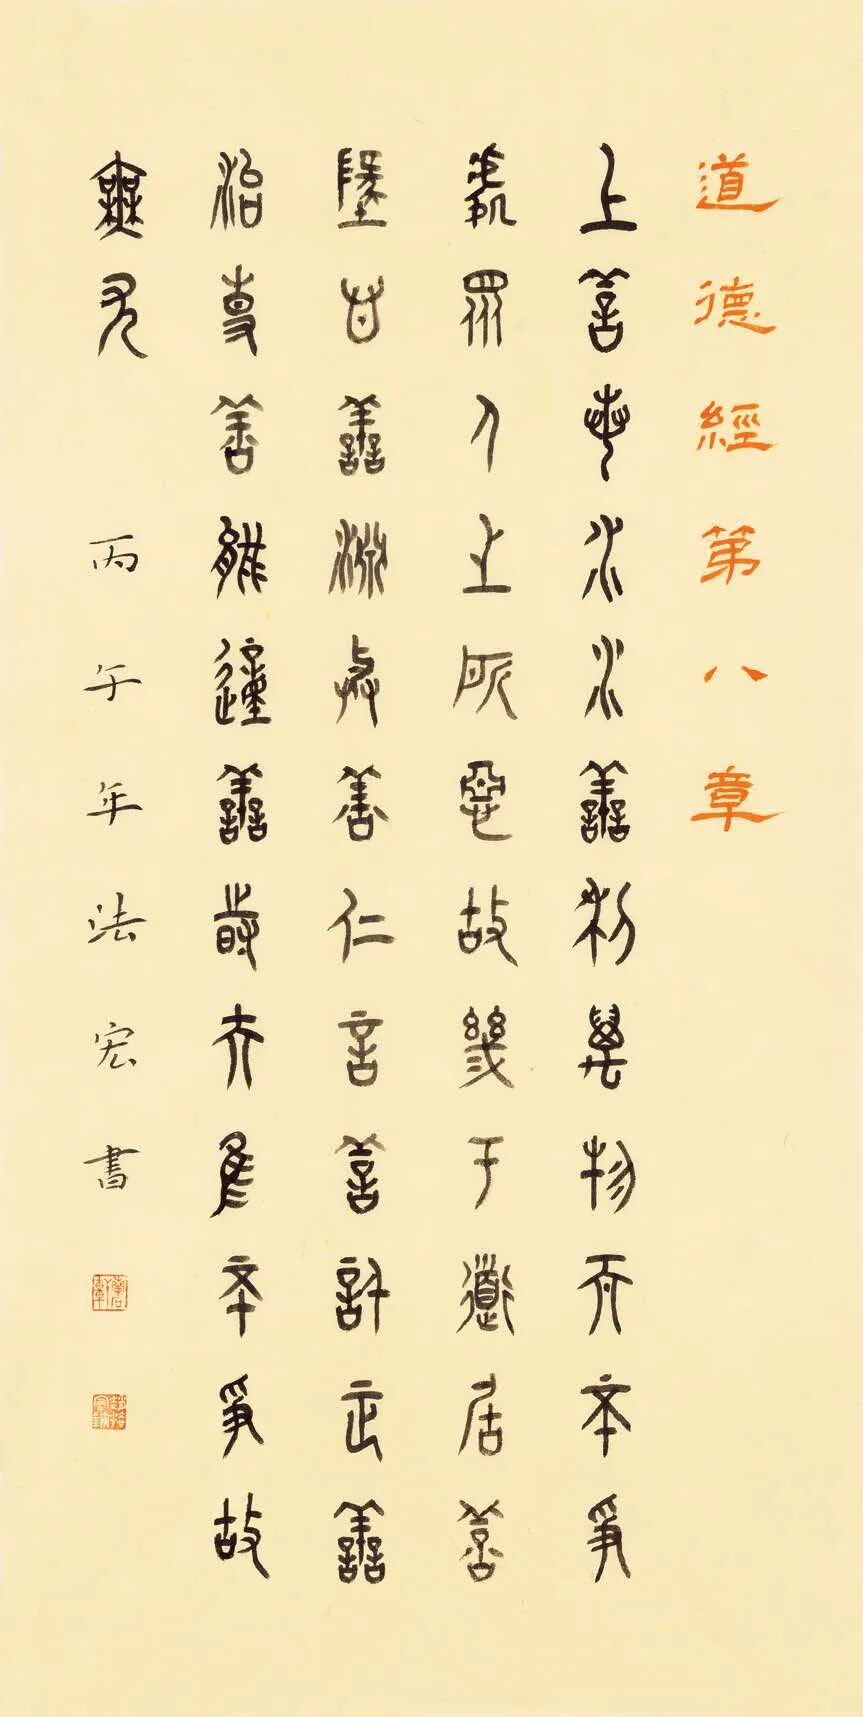 道德經第八章
上善若水水善利萬物而不爭
處眾人之所惡故幾于道居善
地心善淵與善仁言善信正善
治事善能動善時夫唯不爭故
無尤
丙午年法宏書